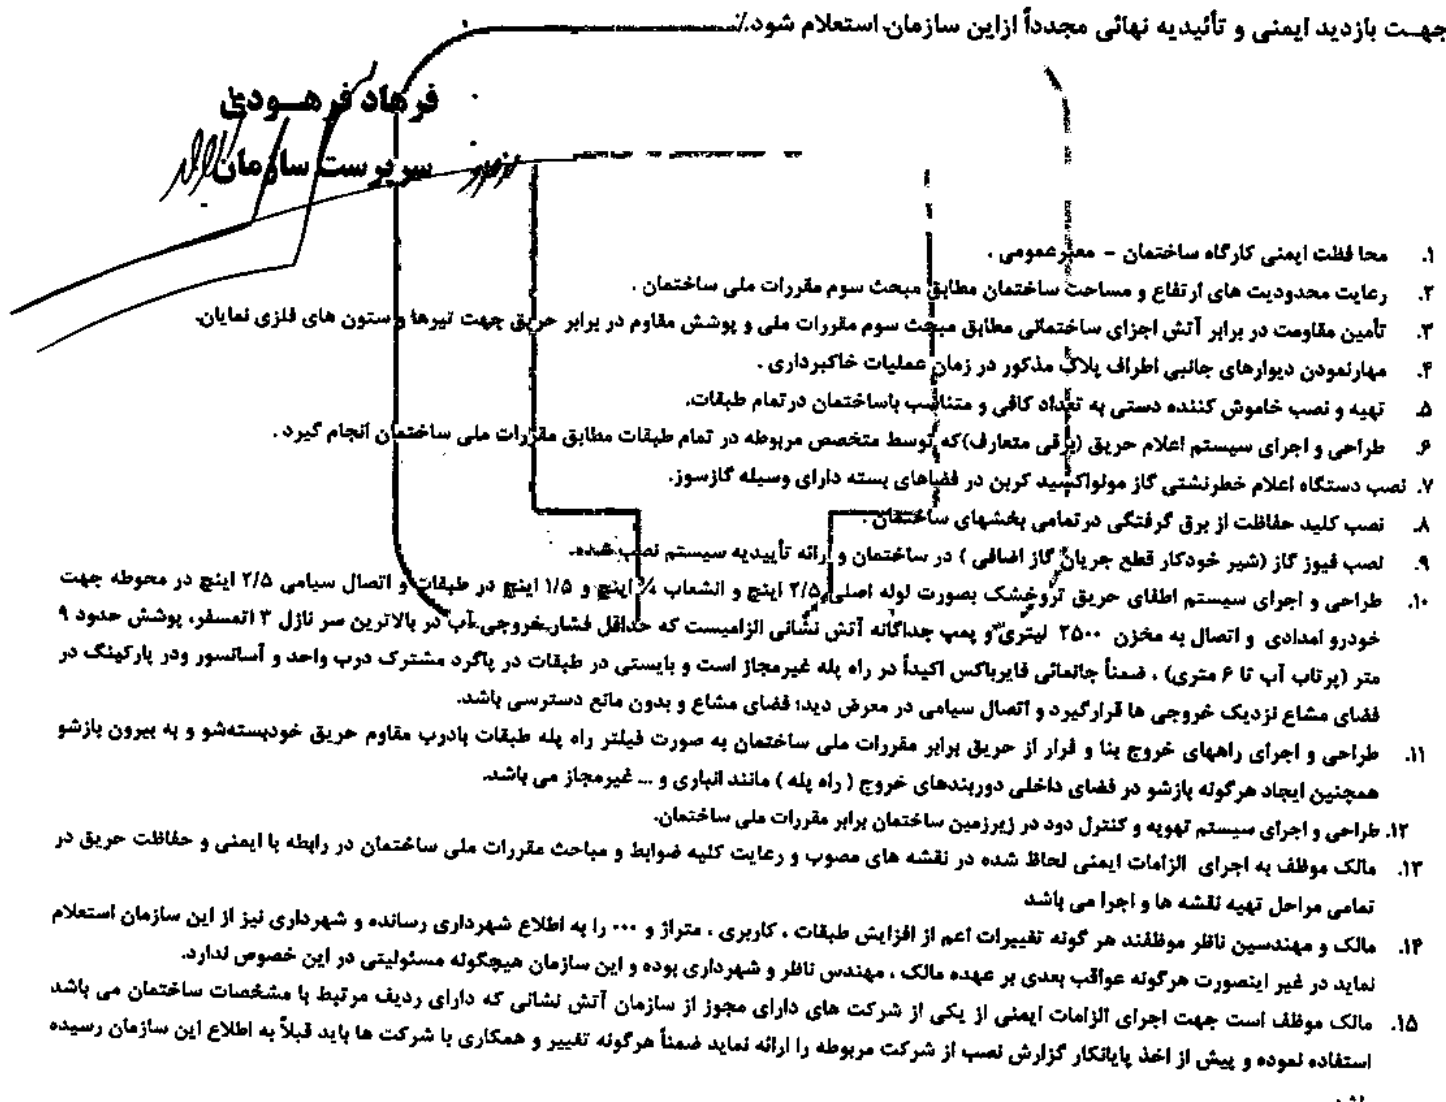 جهت بازدید ایمنی و تأئیدیه نهائی مجدداً ازاین سازمان استعلام شود./
فرهاد فرهودی
سرپرست سازمان
۱. محا فظت ایمنی کارگاه ساختمان - معبرعمومی .
۲. رعایت محدودیت های ارتفاع و مساحت ساختمان مطابق مبحث سوم مقررات ملی ساختمان .
۳. تأمین مقاومت در برابر آتش اجزای ساختمانی مطابق مبحث سوم مقررات ملی و پوشش مقاوم در برابر حریق جهت تیرها و ستون های فلزی نمایان.
۴. مهارنمودن دیوارهای جانبی اطراف پلاک مذکور در زمان عملیات خاکبرداری .
۵. تهیه و نصب خاموش کننده دستی به تعداد کافی و متناسب باساختمان درتمام طبقات.
۶. طراحی و اجرای سیستم اعلام حریق (برقی متعارف)که توسط متخصص مربوطه در تمام طبقات مطابق مقررات ملی ساختمان انجام گیرد .
۷. نصب دستگاه اعلام خطرنشتی گاز مونواکسید کربن در فضاهای بسته دارای وسیله گازسوز.
۸. نصب کلید حفاظت از برق گرفتگی درتمامی بخشهای ساختمان .
۹. نصب فیوز گاز (شیر خودکار قطع جریان گاز اضافی ) در ساختمان و ارائه تأییدیه سیستم نصب شده.
۱۰. طراحی و اجرای سیستم اطفای حریق تروخشک بصورت لوله اصلی ۲/۵ اینچ و انشعاب ¾ اینچ و ۱/۵ اینچ در طبقات و اتصال سیامی ۲/۵ اینچ در محوطه جهت
خودرو امدادی و اتصال به مخزن ۲۵۰۰ لیتری و پمپ جداگانه آتش نشانی الزامیست که حداقل فشار خروجی آب در بالاترین سر نازل ۳ اتمسفر، پوشش حدود ۹
متر (پرتاب آب تا ۶ متری) ، ضمناً جانمائی فایرباکس اکیداً در راه پله غیرمجاز است و بایستی در طبقات در پاگرد مشترک درب واحد و آسانسور ودر پارکینگ در
فضای مشاع نزدیک خروجی ها قرارگیرد و اتصال سیامی در معرض دید؛ فضای مشاع و بدون مانع دسترسی باشد.
۱۱. طراحی و اجرای راههای خروج بنا و فرار از حریق برابر مقررات ملی ساختمان به صورت فیلتر راه پله طبقات بادرب مقاوم حریق خودبسته‌شو و به بیرون بازشو
همچنین ایجاد هرگونه بازشو در فضای داخلی دوربندهای خروج ( راه پله ) مانند انباری و ... غیرمجاز می باشد.
۱۲. طراحی و اجرای سیستم تهویه و کنترل دود در زیرزمین ساختمان برابر مقررات ملی ساختمان.
۱۳. مالک موظف به اجرای الزامات ایمنی لحاظ شده در نقشه های مصوب و رعایت کلیه ضوابط و مباحث مقررات ملی ساختمان در رابطه با ایمنی و حفاظت حریق در
تمامی مراحل تهیه نقشه ها و اجرا می باشد
۱۴. مالک و مهندسین ناظر موظفند هر گونه تغییرات اعم از افزایش طبقات ، کاربری ، متراژ و ... را به اطلاع شهرداری رسانده و شهرداری نیز از این سازمان استعلام
نماید در غیر اینصورت هرگونه عواقب بعدی بر عهده مالک ، مهندس ناظر و شهرداری بوده و این سازمان هیچگونه مسئولیتی در این خصوص ندارد.
۱۵. مالک موظف است جهت اجرای الزامات ایمنی از یکی از شرکت های دارای مجوز از سازمان آتش نشانی که دارای ردیف مرتبط با مشخصات ساختمان می باشد
استفاده نموده و پیش از اخذ پایانکار گزارش نصب از شرکت مربوطه را ارائه نماید ضمناً هرگونه تغییر و همکاری با شرکت ها باید قبلاً به اطلاع این سازمان رسیده